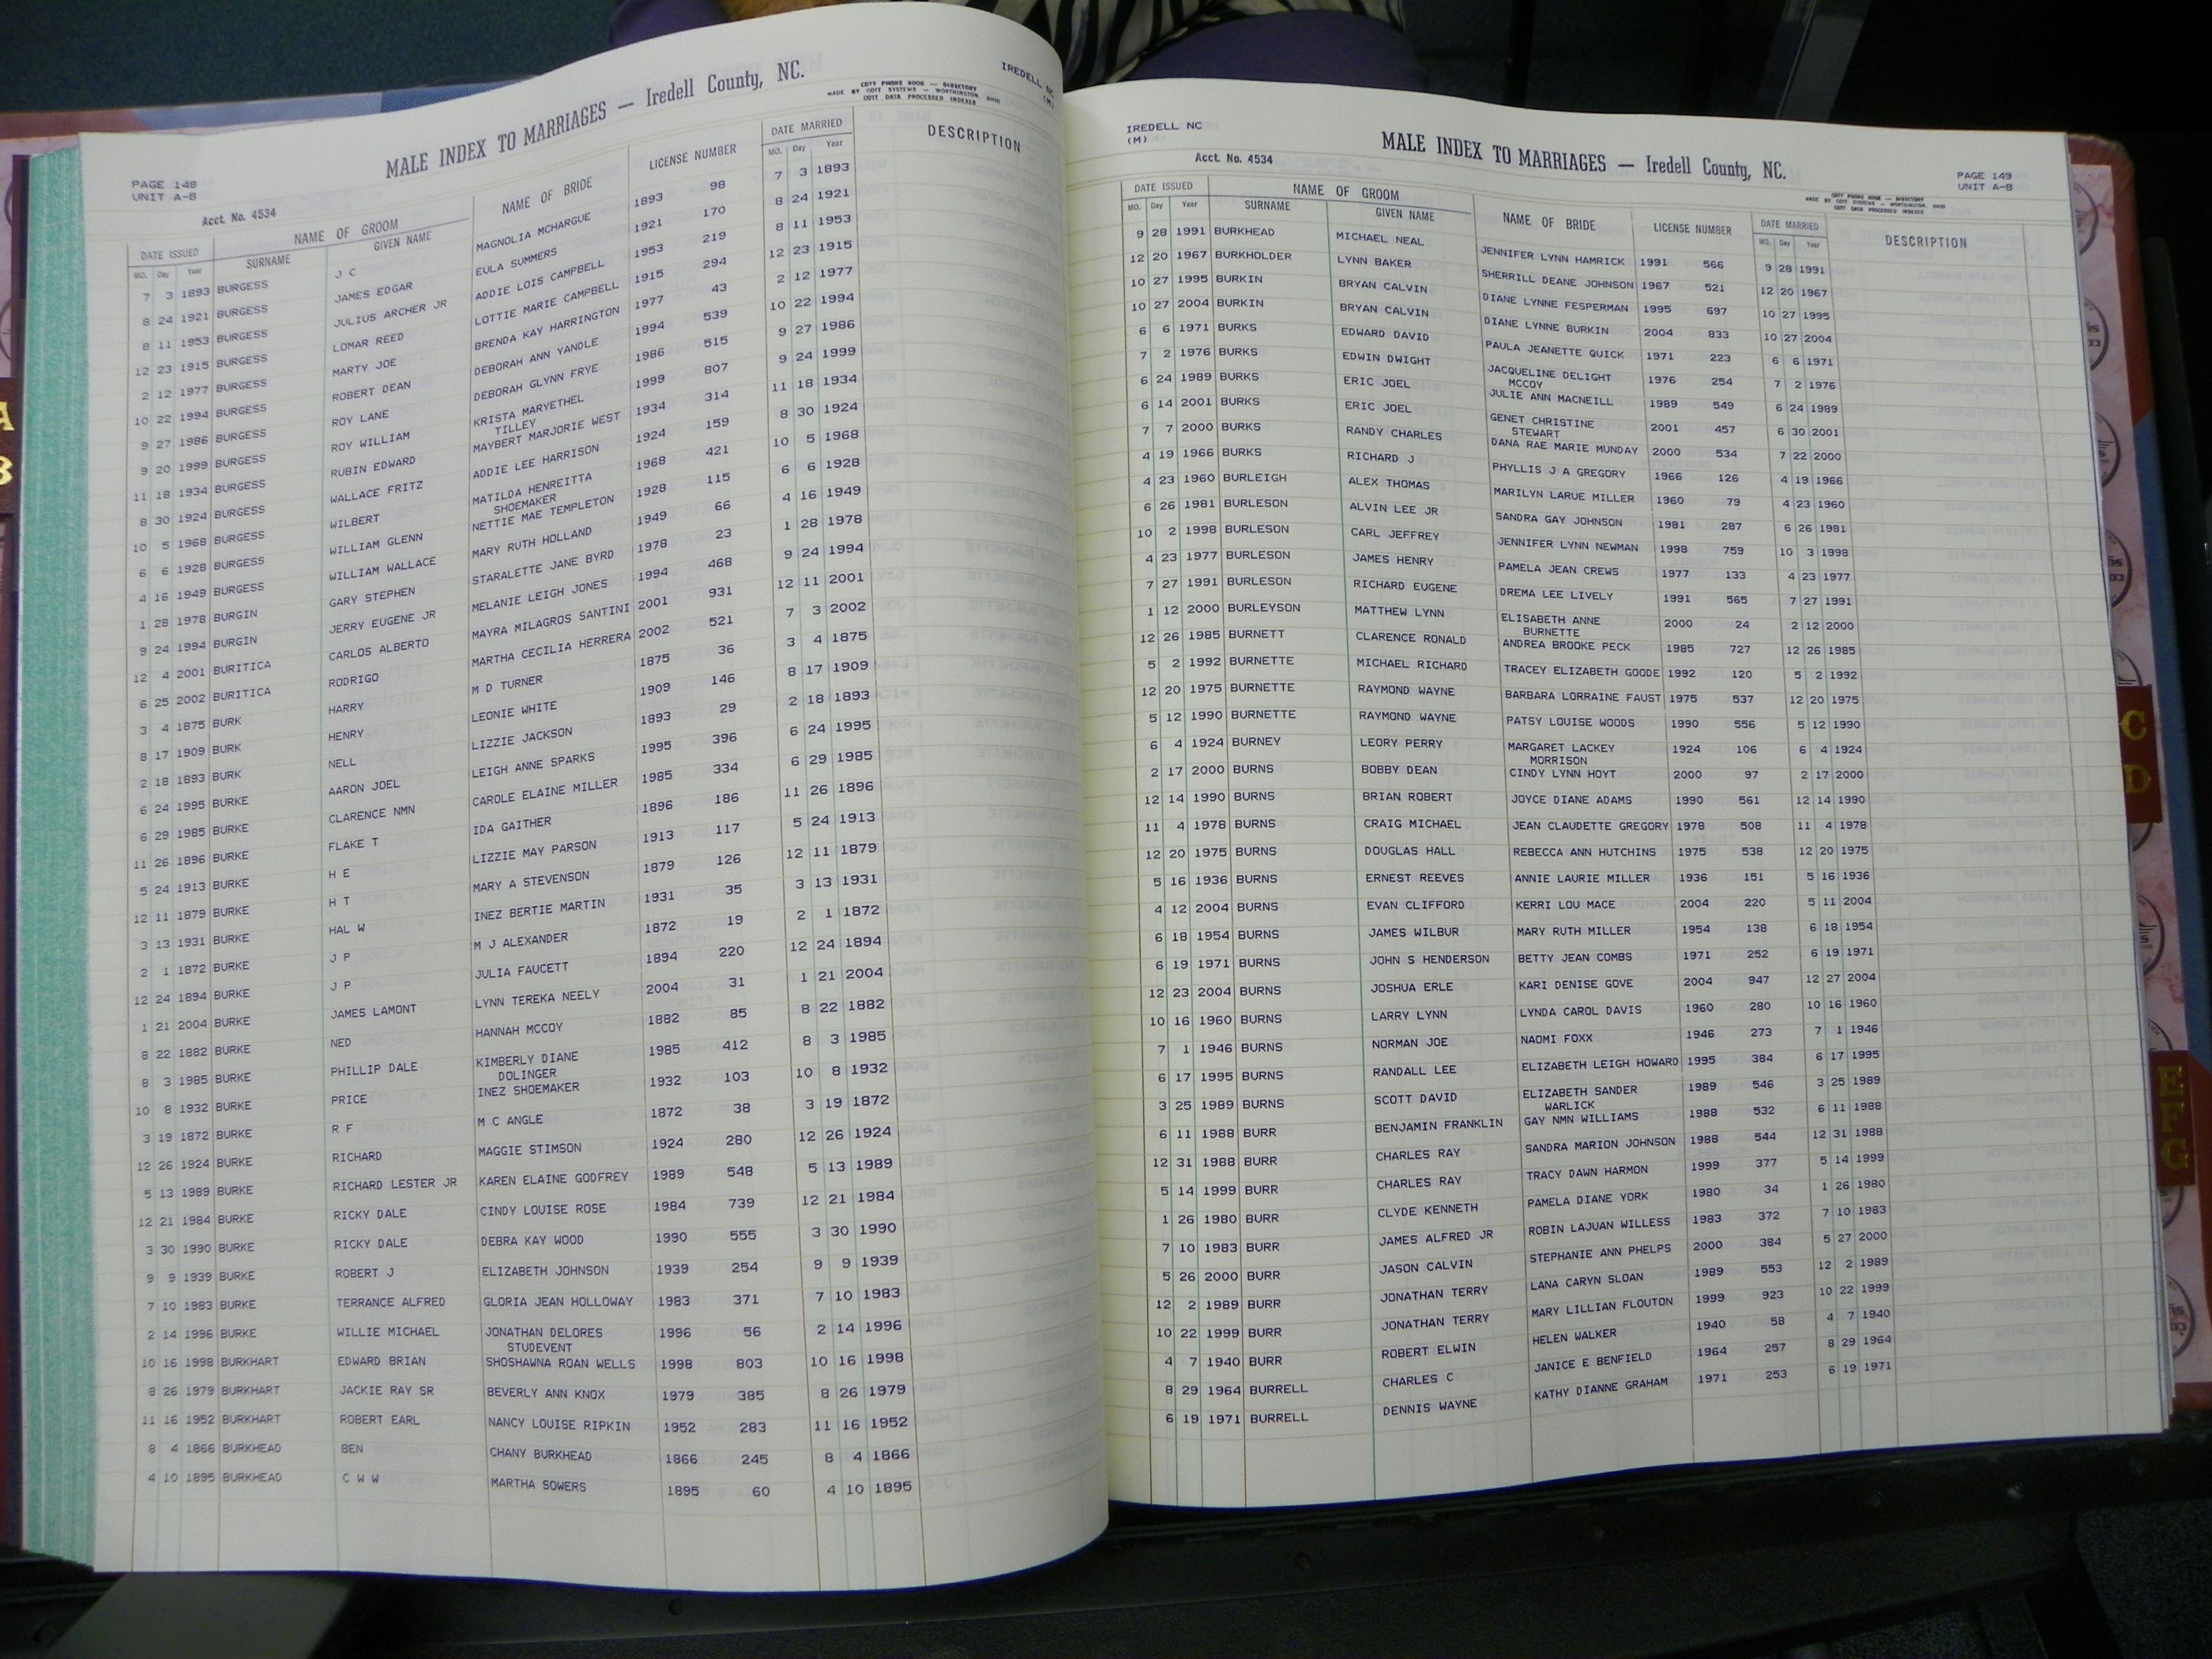 PAGE 148
UNIT A-B
Acct. No. 4534
MALE INDEX TO MARRIAGES — Iredell County, NC.
COTT PHONE BOOK — DIRECTORY
MADE BY COTT SYSTEMS — WORTHINGTON, OHIO
COTT DATA PROCESSED INDEXES
IREDELL NC
(M)
DATE ISSUED NAME OF GROOM NAME OF BRIDE LICENSE NUMBER DATE MARRIED DESCRIPTION
MO. Day Year SURNAME GIVEN NAME MO. Day Year
7 3 1893 BURGESS J C MAGNOLIA MCHARGUE 1893 98 7 3 1893
8 24 1921 BURGESS JAMES EDGAR EULA SUMMERS 1921 170 8 24 1921
8 11 1953 BURGESS JULIUS ARCHER JR ADDIE LOIS CAMPBELL 1953 219 8 11 1953
12 23 1915 BURGESS LOMAR REED LOTTIE MARIE CAMPBELL 1915 294 12 23 1915
2 12 1977 BURGESS MARTY JOE BRENDA KAY HARRINGTON 1977 43 2 12 1977
10 22 1994 BURGESS ROBERT DEAN DEBORAH ANN YANDLE 1994 539 10 22 1994
9 27 1986 BURGESS ROY LANE DEBORAH GLYNN FRYE 1986 515 9 27 1986
9 20 1999 BURGESS ROY WILLIAM KRISTA MARYETHEL 1999 807 9 24 1999
TILLEY
11 18 1934 BURGESS RUBIN EDWARD MAYBERT MARJORIE WEST 1934 314 11 18 1934
8 30 1924 BURGESS WALLACE FRITZ ADDIE LEE HARRISON 1924 159 8 30 1924
10 5 1968 BURGESS WILBERT MATILDA HENREITTA 1968 421 10 5 1968
SHOEMAKER
6 6 1928 BURGESS WILLIAM GLENN NETTIE MAE TEMPLETON 1928 115 6 6 1928
4 16 1949 BURGESS WILLIAM WALLACE MARY RUTH HOLLAND 1949 66 4 16 1949
1 28 1978 BURGIN GARY STEPHEN STARALETTE JANE BYRD 1978 23 1 28 1978
9 24 1994 BURGIN JERRY EUGENE JR MELANIE LEIGH JONES 1994 468 9 24 1994
12 4 2001 BURITICA CARLOS ALBERTO MAYRA MILAGROS SANTINI 2001 931 12 11 2001
6 25 2002 BURITICA RODRIGO MARTHA CECILIA HERRERA 2002 521 7 3 2002
3 4 1875 BURK HARRY M D TURNER 1875 36 3 4 1875
8 17 1909 BURK HENRY LEONIE WHITE 1909 146 8 17 1909
2 18 1893 BURK NELL LIZZIE JACKSON 1893 29 2 18 1893
6 24 1995 BURKE AARON JOEL LEIGH ANNE SPARKS 1995 396 6 24 1995
6 29 1985 BURKE CLARENCE NMN CAROLE ELAINE MILLER 1985 334 6 29 1985
11 26 1896 BURKE FLAKE T IDA GAITHER 1896 186 11 26 1896
5 24 1913 BURKE H E LIZZIE MAY PARSON 1913 117 5 24 1913
12 11 1879 BURKE H T MARY A STEVENSON 1879 126 12 11 1879
3 13 1931 BURKE HAL W INEZ BERTIE MARTIN 1931 35 3 13 1931
2 1 1872 BURKE J P M J ALEXANDER 1872 19 2 1 1872
12 24 1894 BURKE J P JULIA FAUCETT 1894 220 12 24 1894
1 21 2004 BURKE JAMES LAMONT LYNN TEREKA NEELY 2004 31 1 21 2004
8 22 1882 BURKE NED HANNAH MCCOY 1882 85 8 22 1882
8 3 1985 BURKE PHILLIP DALE KIMBERLY DIANE 1985 412 8 3 1985
DOLINGER
10 8 1932 BURKE PRICE INEZ SHOEMAKER 1932 103 10 8 1932
3 19 1872 BURKE R F M C ANGLE 1872 38 3 19 1872
12 26 1924 BURKE RICHARD MAGGIE STIMSON 1924 280 12 26 1924
5 13 1989 BURKE RICHARD LESTER JR KAREN ELAINE GODFREY 1989 548 5 13 1989
12 21 1984 BURKE RICKY DALE CINDY LOUISE ROSE 1984 739 12 21 1984
3 30 1990 BURKE RICKY DALE DEBRA KAY WOOD 1990 555 3 30 1990
9 9 1939 BURKE ROBERT J ELIZABETH JOHNSON 1939 254 9 9 1939
7 10 1983 BURKE TERRANCE ALFRED GLORIA JEAN HOLLOWAY 1983 371 7 10 1983
2 14 1996 BURKE WILLIE MICHAEL JONATHAN DELORES 1996 56 2 14 1996
STUDEVENT
10 16 1998 BURKHART EDWARD BRIAN SHOSHAWNA ROAN WELLS 1998 803 10 16 1998
8 26 1979 BURKHART JACKIE RAY SR BEVERLY ANN KNOX 1979 385 8 26 1979
11 16 1952 BURKHART ROBERT EARL NANCY LOUISE RIPKIN 1952 283 11 16 1952
8 4 1866 BURKHEAD BEN CHANY BURKHEAD 1866 245 8 4 1866
4 10 1895 BURKHEAD C W W MARTHA SOWERS 1895 60 4 10 1895
IREDELL NC
(M)
Acct. No. 4534
MALE INDEX TO MARRIAGES — Iredell County, NC.
PAGE 149
UNIT A-B
COTT PHONE BOOK — DIRECTORY
MADE BY COTT SYSTEMS — WORTHINGTON, OHIO
COTT DATA PROCESSED INDEXES
DATE ISSUED NAME OF GROOM NAME OF BRIDE LICENSE NUMBER DATE MARRIED DESCRIPTION
MO. Day Year SURNAME GIVEN NAME MO. Day Year
9 28 1991 BURKHEAD MICHAEL NEAL JENNIFER LYNN HAMRICK 1991 566 9 28 1991
12 20 1967 BURKHOLDER LYNN BAKER SHERRILL DEANE JOHNSON 1967 521 12 20 1967
10 27 1995 BURKIN BRYAN CALVIN DIANE LYNNE FESPERMAN 1995 697 10 27 1995
10 27 2004 BURKIN BRYAN CALVIN DIANE LYNNE BURKIN 2004 833 10 27 2004
6 6 1971 BURKS EDWARD DAVID PAULA JEANETTE QUICK 1971 223 6 6 1971
7 2 1976 BURKS EDWIN DWIGHT JACQUELINE DELIGHT 1976 254 7 2 1976
MCCOY
6 24 1989 BURKS ERIC JOEL JULIE ANN MACNEILL 1989 549 6 24 1989
6 14 2001 BURKS ERIC JOEL GENET CHRISTINE 2001 457 6 30 2001
STEWART
7 7 2000 BURKS RANDY CHARLES DANA RAE MARIE MUNDAY 2000 534 7 22 2000
4 19 1966 BURKS RICHARD J PHYLLIS J A GREGORY 1966 126 4 19 1966
4 23 1960 BURLEIGH ALEX THOMAS MARILYN LARUE MILLER 1960 79 4 23 1960
6 26 1981 BURLESON ALVIN LEE JR SANDRA GAY JOHNSON 1981 287 6 26 1981
10 2 1998 BURLESON CARL JEFFREY JENNIFER LYNN NEWMAN 1998 759 10 3 1998
4 23 1977 BURLESON JAMES HENRY PAMELA JEAN CREWS 1977 133 4 23 1977
7 27 1991 BURLESON RICHARD EUGENE DREMA LEE LIVELY 1991 565 7 27 1991
1 12 2000 BURLEYSON MATTHEW LYNN ELISABETH ANNE 2000 24 2 12 2000
BURNETTE
12 26 1985 BURNETT CLARENCE RONALD ANDREA BROOKE PECK 1985 727 12 26 1985
5 2 1992 BURNETTE MICHAEL RICHARD TRACEY ELIZABETH GOODE 1992 120 5 2 1992
12 20 1975 BURNETTE RAYMOND WAYNE BARBARA LORRAINE FAUST 1975 537 12 20 1975
5 12 1990 BURNETTE RAYMOND WAYNE PATSY LOUISE WOODS 1990 556 5 12 1990
6 4 1924 BURNEY LEORY PERRY MARGARET LACKEY 1924 106 6 4 1924
MORRISON
2 17 2000 BURNS BOBBY DEAN CINDY LYNN HOYT 2000 97 2 17 2000
12 14 1990 BURNS BRIAN ROBERT JOYCE DIANE ADAMS 1990 561 12 14 1990
11 4 1978 BURNS CRAIG MICHAEL JEAN CLAUDETTE GREGORY 1978 508 11 4 1978
12 20 1975 BURNS DOUGLAS HALL REBECCA ANN HUTCHINS 1975 538 12 20 1975
5 16 1936 BURNS ERNEST REEVES ANNIE LAURIE MILLER 1936 151 5 16 1936
4 12 2004 BURNS EVAN CLIFFORD KERRI LOU MACE 2004 220 5 11 2004
6 18 1954 BURNS JAMES WILBUR MARY RUTH MILLER 1954 138 6 18 1954
6 19 1971 BURNS JOHN S HENDERSON BETTY JEAN COMBS 1971 252 6 19 1971
12 23 2004 BURNS JOSHUA ERLE KARI DENISE GOVE 2004 947 12 27 2004
10 16 1960 BURNS LARRY LYNN LYNDA CAROL DAVIS 1960 280 10 16 1960
7 1 1946 BURNS NORMAN JOE NAOMI FOXX 1946 273 7 1 1946
6 17 1995 BURNS RANDALL LEE ELIZABETH LEIGH HOWARD 1995 384 6 17 1995
3 25 1989 BURNS SCOTT DAVID ELIZABETH SANDER 1989 546 3 25 1989
WARLICK
6 11 1988 BURR BENJAMIN FRANKLIN GAY NMN WILLIAMS 1988 532 6 11 1988
12 31 1988 BURR CHARLES RAY SANDRA MARION JOHNSON 1988 544 12 31 1988
5 14 1999 BURR CHARLES RAY TRACY DAWN HARMON 1999 377 5 14 1999
1 26 1980 BURR CLYDE KENNETH PAMELA DIANE YORK 1980 34 1 26 1980
7 10 1983 BURR JAMES ALFRED JR ROBIN LAJUAN WILLESS 1983 372 7 10 1983
5 26 2000 BURR JASON CALVIN STEPHANIE ANN PHELPS 2000 384 5 27 2000
12 2 1989 BURR JONATHAN TERRY LANA CARYN SLOAN 1989 553 12 2 1989
10 22 1999 BURR JONATHAN TERRY MARY LILLIAN FLOUTON 1999 923 10 22 1999
4 7 1940 BURR ROBERT ELWIN HELEN WALKER 1940 58 4 7 1940
8 29 1964 BURRELL CHARLES C JANICE E BENFIELD 1964 257 8 29 1964
6 19 1971 BURRELL DENNIS WAYNE KATHY DIANNE GRAHAM 1971 253 6 19 1971
A
B
C
D
E
F
G